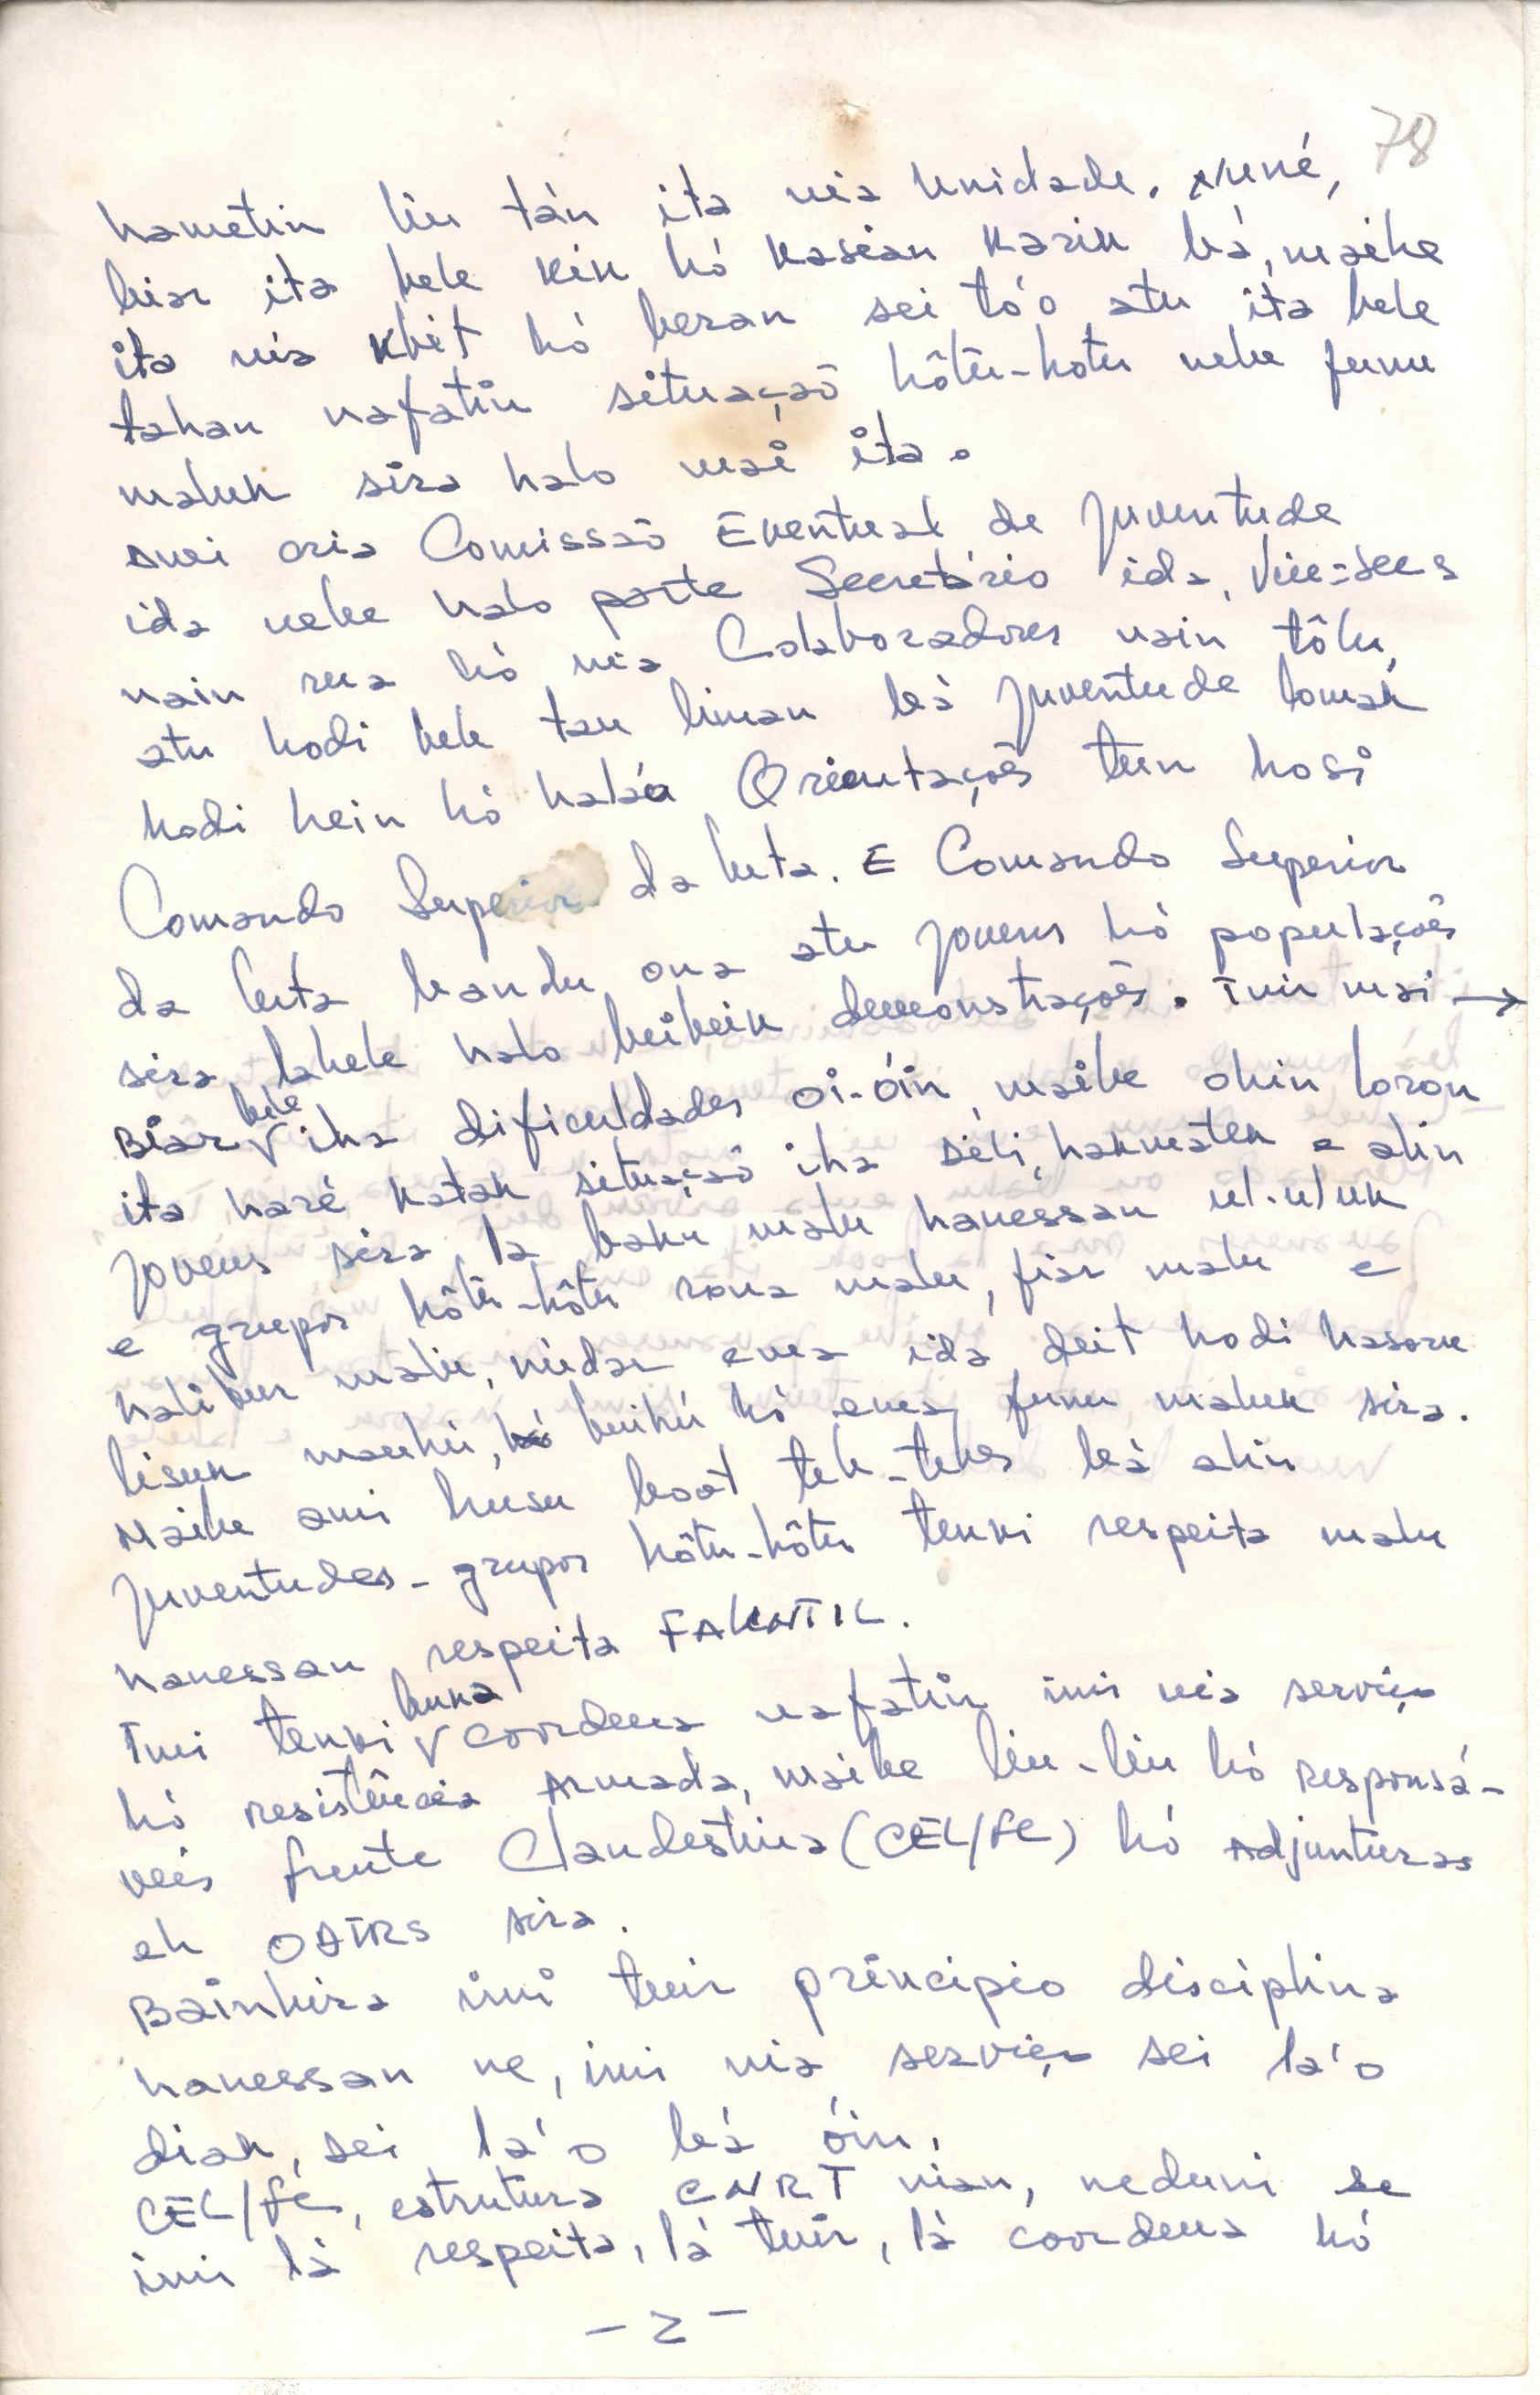 78
hametin liu tán ita nia Unidade. Nuné,
biar ita bele kik hó kasian karik bá, maibe
ita nia kbit hó beran sei tó'o atu ita bele
tahan nafatin situaçaõ hôtu-hotu nebe funu
maluk sira halo mai ita.
Ami cria Comissaõ Eventual de Juventude
ida nebe halo parte Secretário ida, Vice-Secs
nain rua hó nia Colaboradores nain tôlu,
atu hodi bele tau liman bá Juventude tomak
hodi hein hó hala'o Orientaçoês tun hosi
Comando Superior da Luta. E Comando Superior
da Luta bandu ona atu jovens hó populaçoês
sira labele halo beibeik demonstraçoês. Tuir mai →
Biar bele iha dificuldades oi-óin, maibe ohin loron
ita haré katak situaçaõ iha séti, hakmatek e alin
jovens sira la baku malu hanessan ul-uluk
e grupos hôtu-hôtu rona malu, fiar malu e
halibur malu, nudar ema ida deit hodi hasoru
bisuk mauhú, buihú hó ema funu maluk sira.
Maibe ami husu boot teb-tebes bá alin
juventudes-grupos hôtu-hôtu tenki respeita malu
hanessan respeita FALINTIL.
Imi tenki buka coordena nafatin imi nia serviço
hó resistência Armada, maibe liu-liu hó responsá-
veis frente Clandestina (CEL/FC) hó Adjunturas
eh OATRS sira.
Bainhira imi tuir principio disciplina
hanessan ne, imi nia serviço sei la'o
diak, sei la'o bá óin.
CEL/FC, estrutura CNRT nian, neduni se
imi lá respeita, lá tuir, lá coordena hó
- 2 -